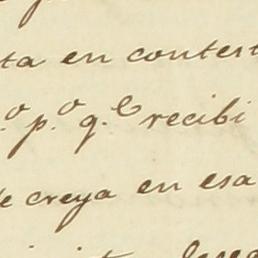 ta en contest
.º p.º q.e recibi
de creya en esa